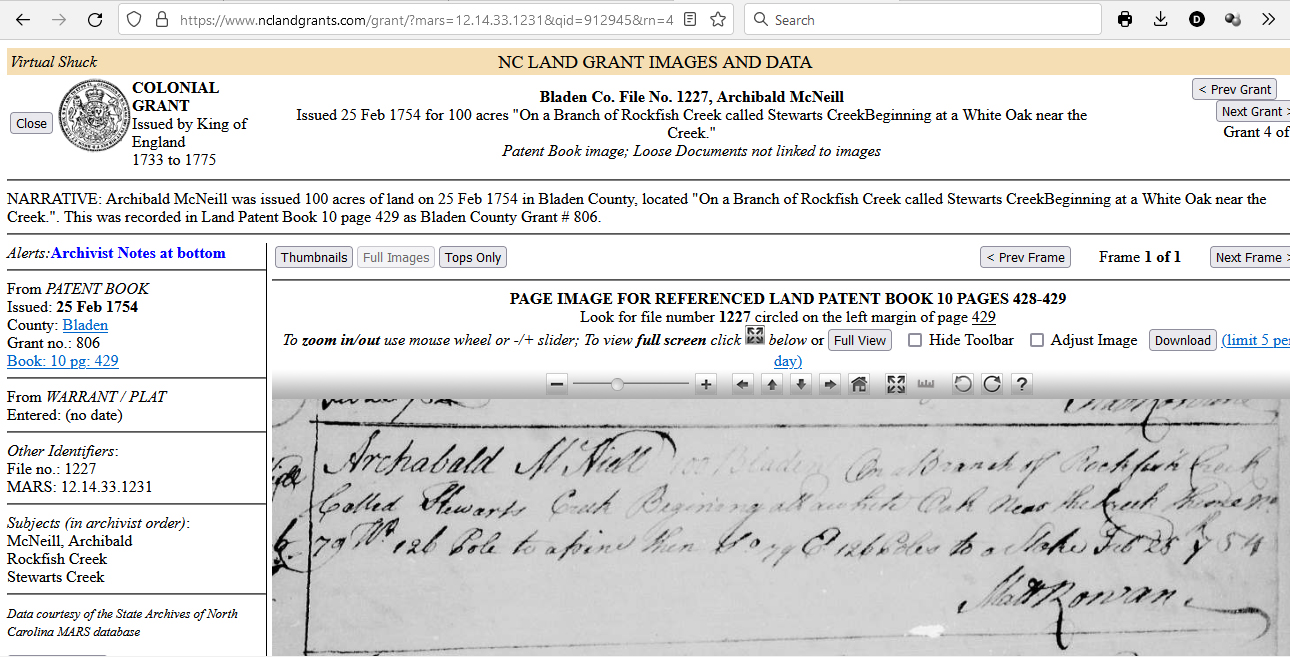 https://www.nclandgrants.com/grant/?mars=12.14.33.1231&qid=912945&rn=4
Search
Virtual Shuck
NC LAND GRANT IMAGES AND DATA
Close
COLONIAL
GRANT
Issued by King of
England
1733 to 1775
Bladen Co. File No. 1227, Archibald McNeill
Issued 25 Feb 1754 for 100 acres "On a Branch of Rockfish Creek called Stewarts CreekBeginning at a White Oak near the
Creek."
Patent Book image; Loose Documents not linked to images
< Prev Grant
Next Grant >
Grant 4 of
NARRATIVE: Archibald McNeill was issued 100 acres of land on 25 Feb 1754 in Bladen County, located "On a Branch of Rockfish Creek called Stewarts CreekBeginning at a White Oak near the
Creek.". This was recorded in Land Patent Book 10 page 429 as Bladen County Grant # 806.
Alerts:Archivist Notes at bottom
From PATENT BOOK
Issued: 25 Feb 1754
County: Bladen
Grant no.: 806
Book: 10 pg: 429
From WARRANT / PLAT
Entered: (no date)
Other Identifiers:
File no.: 1227
MARS: 12.14.33.1231
Subjects (in archivist order):
McNeill, Archibald
Rockfish Creek
Stewarts Creek
Data courtesy of the State Archives of North
Carolina MARS database
Thumbnails Full Images Tops Only
< Prev Frame Frame 1 of 1 Next Frame >
PAGE IMAGE FOR REFERENCED LAND PATENT BOOK 10 PAGES 428-429
Look for file number 1227 circled on the left margin of page 429
To zoom in/out use mouse wheel or -/+ slider; To view full screen click below or Full View Hide Toolbar Adjust Image Download (limit 5 per
day)
Archabald McNiell 100 Bladen On a Branch of Rockfish Creek
Called Stewarts Creek Begining at a white Oak Near the Creek thence
79 W 126 Pole to a pine then 79 E 126 Poles to a Stake Feb 25 1754
Matt Rowan